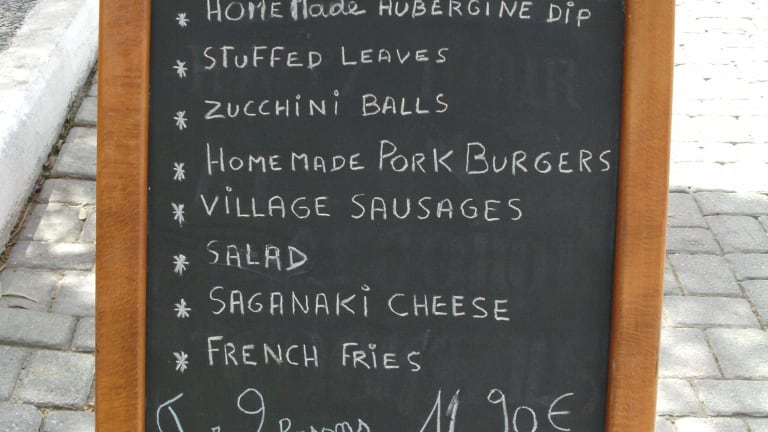 * HOMEMade AUBERGINE DIP
* STUFFED LEAVES
* ZUCCHINI BALLS
* HOMEMADE PORK BURGERS
* VILLAGE SAUSAGES
* SALAD
* SAGANAKI CHEESE
* FRENCH FRIES
11,90€